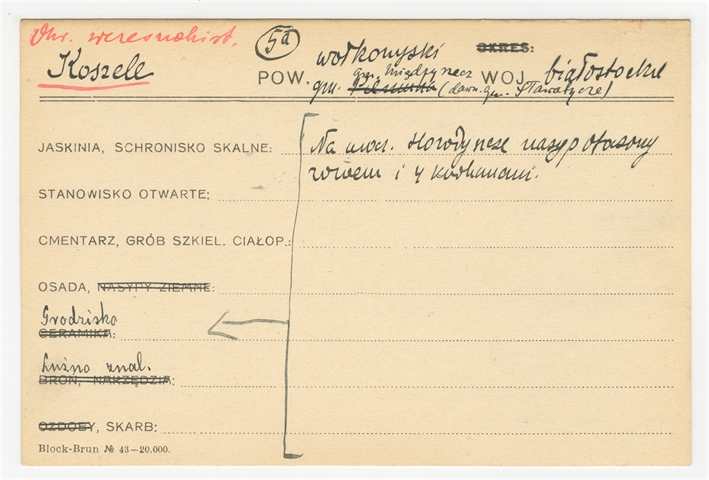 Okr. wczesnohist. (5a) wołkowyski OKRES:
Koszele POW. gm. Międzyrzecz WOJ. białostockie
gm. (dawn. gm. Sławatycze)
JASKINIA, SCHRONISKO SKALNE: Na ur. Horodyszcze nasyp otoczony
rowem i 4 kurhanami.
STANOWISKO OTWARTE:
CMENTARZ, GRÓB SZKIEL. CIAŁOP.:
OSADA, NASYPY ZIEMNE:
Grodzisko
CERAMIKA:
Luźno znal.
BROŃ, NARZĘDZIA:
OZDOBY, SKARB:
Block-Brun № 43—20.000.